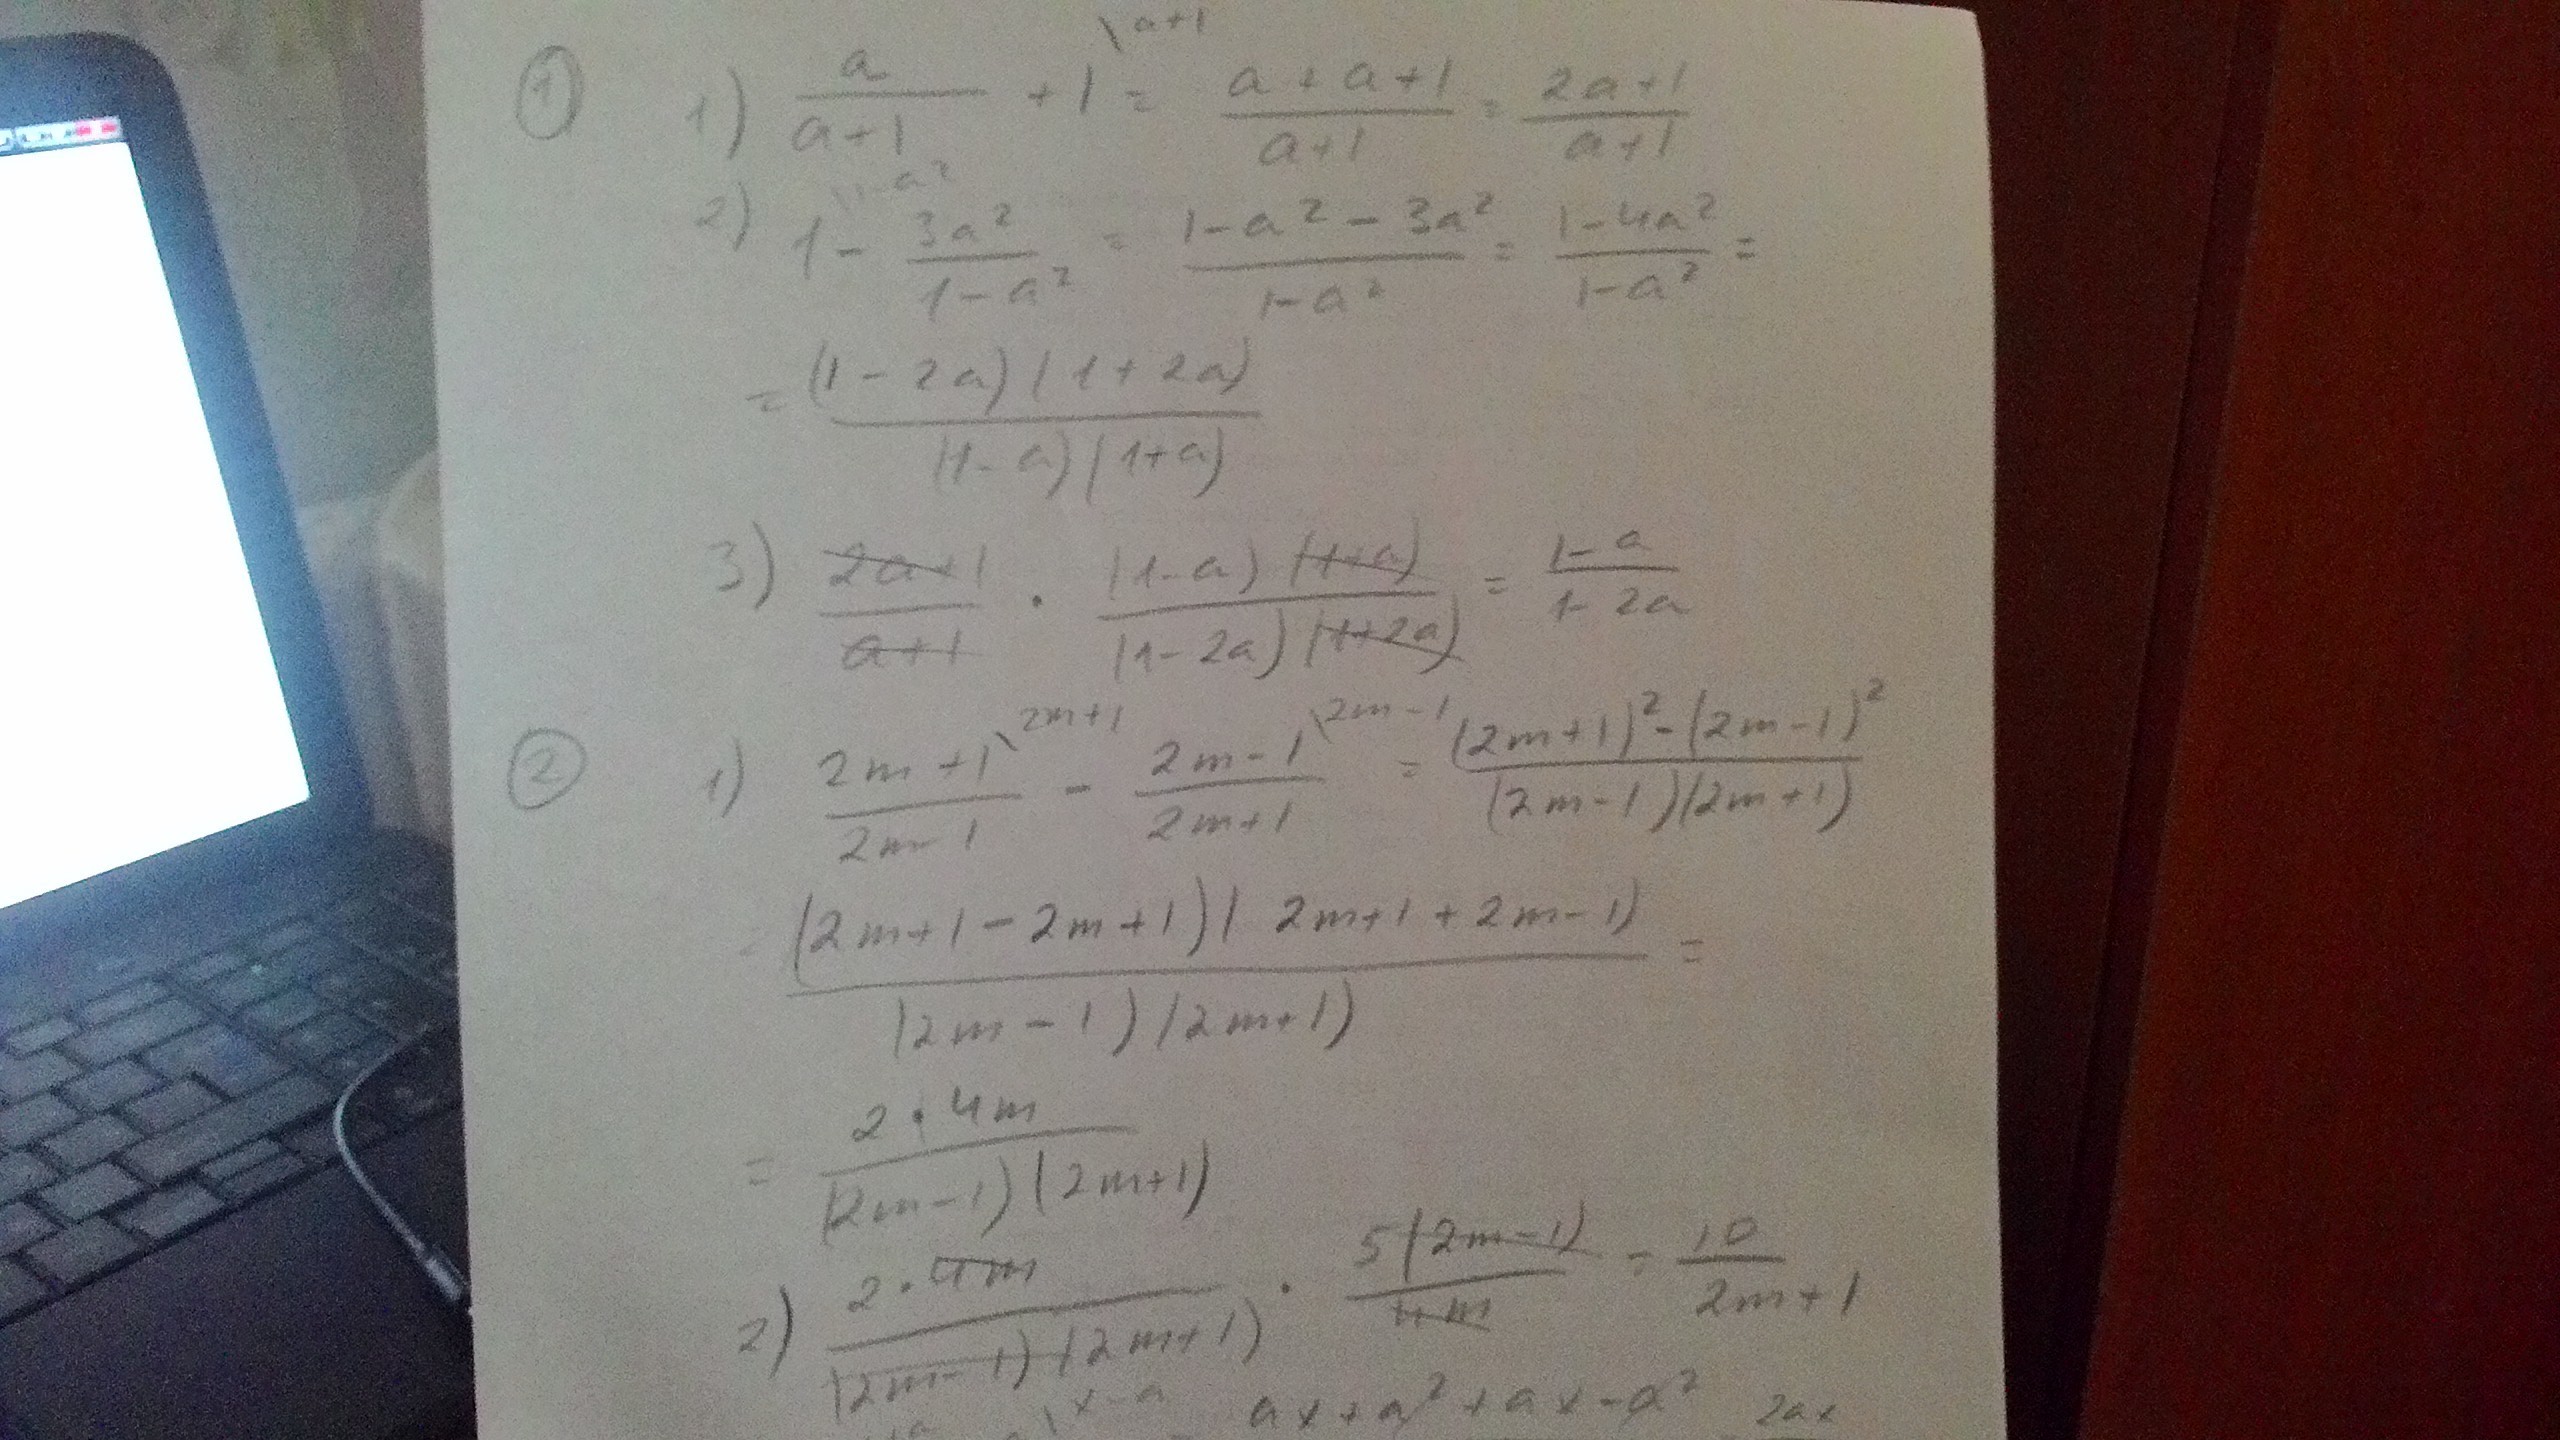 \a+1
① 1) a/(a+1) + 1 = (a+a+1)/(a+1) = (2a+1)/(a+1)
\1-a²
2) 1 - 3a²/(1-a²) = (1-a²-3a²)/(1-a²) = (1-4a²)/(1-a²) =
= (1-2a)(1+2a)/(1-a)(1+a)
3) (2a+1)/(a+1) · (1-a)(1+a)/(1-2a)(1+2a) = (1-a)/(1-2a)
② 1) (2m+1)/(2m-1) \2m+1 - (2m-1)/(2m+1) \2m-1 = ((2m+1)²-(2m-1)²)/(2m-1)(2m+1)
= (2m+1-2m+1)(2m+1+2m-1)/(2m-1)(2m+1) =
= 2·4m/(2m-1)(2m+1)
2) 2·4m/(2m-1)(2m+1) · 5(2m-1)/4m = 10/(2m+1)
\x-a ax+a²+ax-a² = 2ax